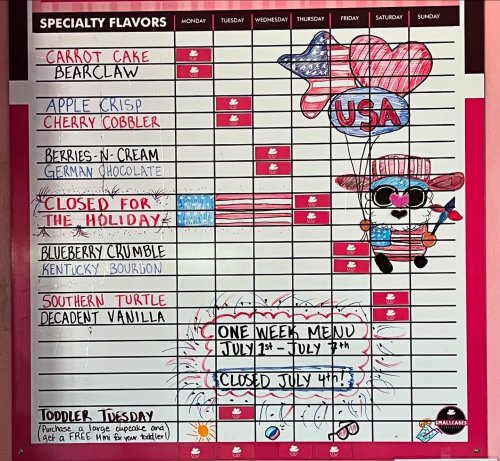 SPECIALTY FLAVORS MONDAY TUESDAY WEDNESDAY THURSDAY FRIDAY SATURDAY SUNDAY
CARROT CAKE
BEARCLAW
USA
APPLE CRISP
CHERRY COBBLER
BERRIES-N-CREAM
GERMAN CHOCOLATE
CLOSED FOR
THE HOLIDAY
BLUEBERRY CRUMBLE
KENTUCKY BOURBON
SOUTHERN TURTLE
DECADENT VANILLA
ONE WEEK MENU
JULY 1st - JULY 7th
CLOSED JULY 4th!
TODDLER TUESDAY
(Purchase a large cupcake and
get a FREE Mini for your toddler!)
SMALLCAKES